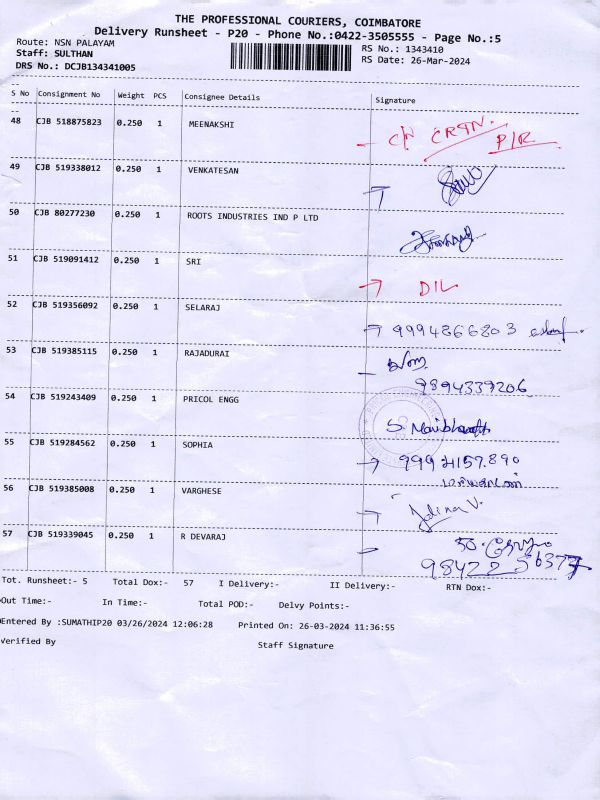 THE PROFESSIONAL COURIERS, COIMBATORE
Delivery Runsheet - P20 - Phone No.:0422-3505555 - Page No.:5
Route: NSN PALAYAM RS No.: 1343410
Staff: SULTHAN RS Date: 26-Mar-2024
DRS No.: DCJB134341005
S No Consignment No Weight PCS Consignee Details Signature
48 CJB 518875823 0.250 1 MEENAKSHI
49 CJB 519338012 0.250 1 VENKATESAN
50 CJB 80277230 0.250 1 ROOTS INDUSTRIES IND P LTD
51 CJB 519091412 0.250 1 SRI → D/L
52 CJB 519356092 0.250 1 SELARAJ → 9994266803
53 CJB 519385115 0.250 1 RAJADURAI
9894339206
54 CJB 519243409 0.250 1 PRICOL ENGG
55 CJB 519284562 0.250 1 SOPHIA
56 CJB 519385008 0.250 1 VARGHESE → Jelina V.
57 CJB 519339045 0.250 1 R DEVARAJ
Tot. Runsheet:- 5 Total Dox:- 57 I Delivery:- II Delivery:- RTN Dox:-
Out Time:- In Time:- Total POD:- Delvy Points:-
Entered By :SUMATHIP20 03/26/2024 12:06:28 Printed On: 26-03-2024 11:36:55
Verified By Staff Signature